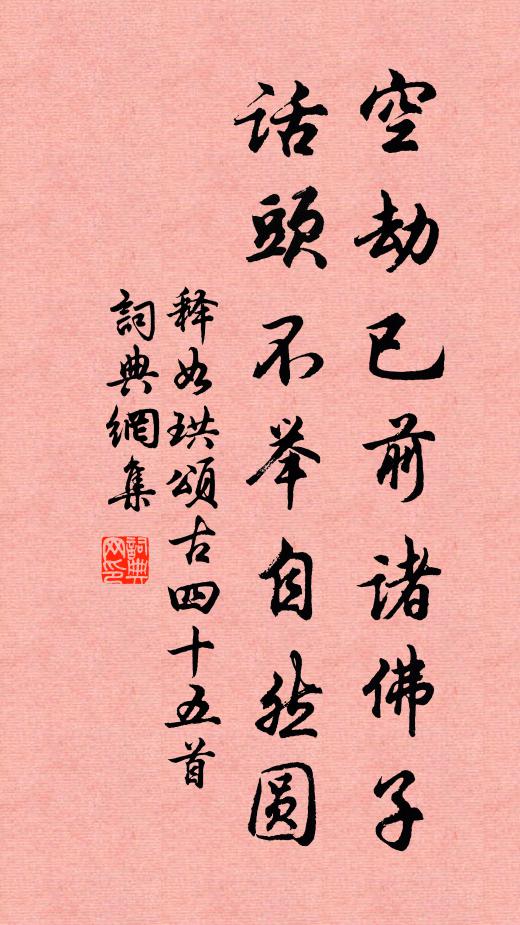 空劫已前诸佛子
话头不举自然圆
释如珙颂古四十五首
词典网集
词典网印